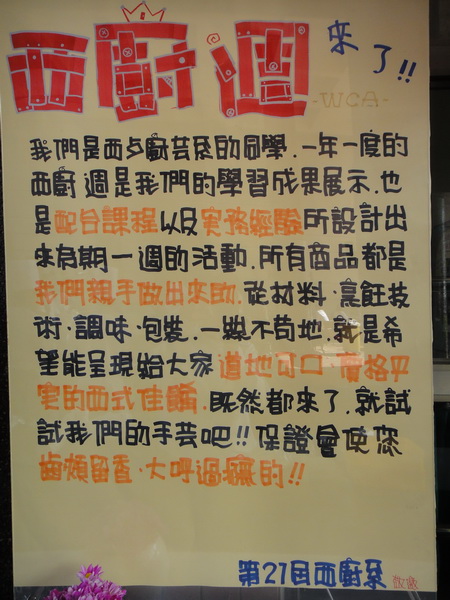 西廚週 來了!!
-WCA-
我們是西式廚芸系的同學.一年一度的
西廚週是我們的學習成果展示.也
是配合課程以及實務經驗所設計出
來為期一週的活動.所有商品都是
我們親手做出來的.從材料.烹飪技
術.調味.包裝.一點不苟地.就是希
望能呈現給大家道地可口 價格平
實的西式佳餚.既然都來了.就試
試我們的手芸吧!!保證會使您
齒頰留香.大呼過癮的!!
第21屆西廚系